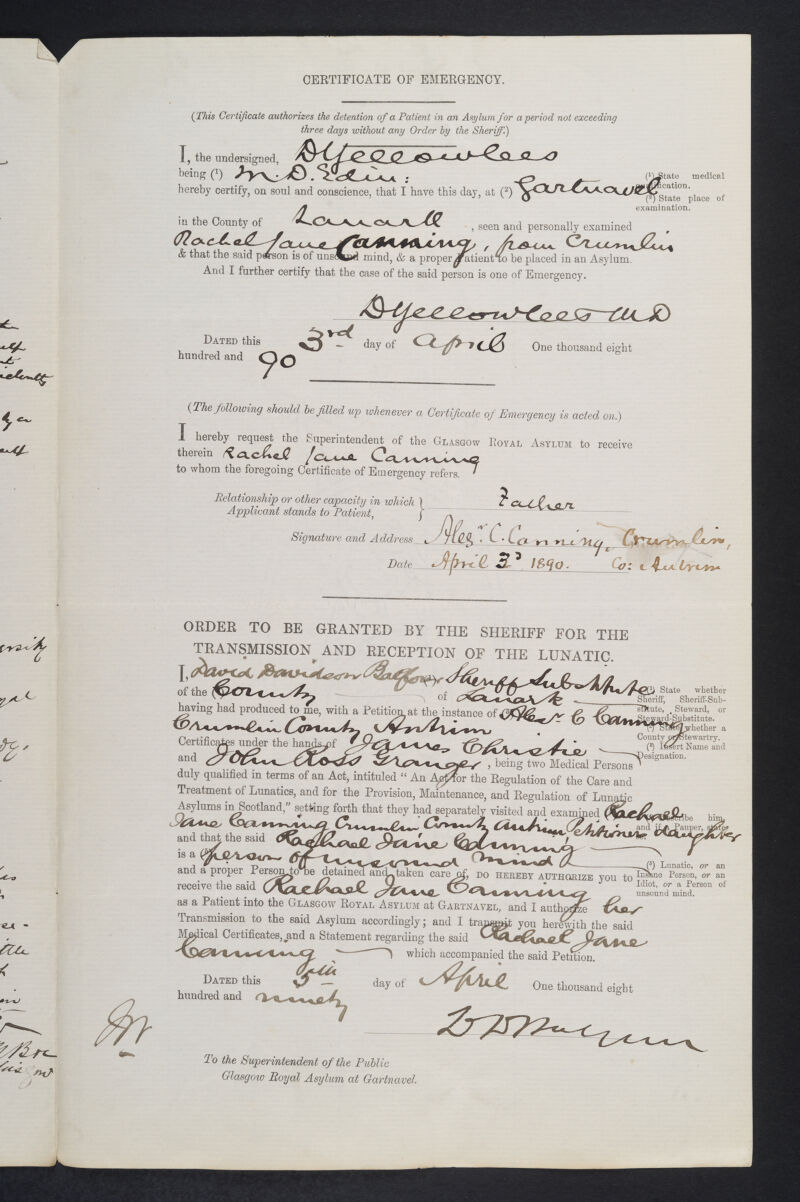 CERTIFICATE OF EMERGENCY.
(This Certificate authorizes the detention of a Patient in an Asylum for a period not exceeding
three days without any Order by the Sheriff.)
I, the undersigned, D Yellowlees
being (¹) M.D. Edin:
(¹) State medical
qualification.
hereby certify, on soul and conscience, that I have this day, at (²) Gartnavel
(²) State place of
examination.
in the County of Lanark , seen and personally examined
Rachel Jane Canning, from Crumlin
& that the said person is of unsound mind, & a proper Patient to be placed in an Asylum.
And I further certify that the case of the said person is one of Emergency.
D Yellowlees MD
DATED this 3rd day of April One thousand eight
hundred and 90
(The following should be filled up whenever a Certificate of Emergency is acted on.)
I hereby request the Superintendent of the GLASGOW ROYAL ASYLUM to receive
therein Rachel Jane Canning
to whom the foregoing Certificate of Emergency refers.
Relationship or other capacity in which
Applicant stands to Patient, } Father
Signature and Address Alexr. C. Canning, Crumlin,
Date April 3d 1890. Co: Antrim
ORDER TO BE GRANTED BY THE SHERIFF FOR THE
TRANSMISSION AND RECEPTION OF THE LUNATIC.
I, David Davidson Balfour Sheriff Substitute
of the County of Lanark
(¹) State whether
Sheriff, Sheriff-Sub-
stitute, Steward, or
Steward-Substitute.
having had produced to me, with a Petition at the instance of Alexr. C Canning
Crumlin County Antrim
(²) State whether a
County or Stewartry.
Certificates under the hands of James Christie
(³) Insert Name and
Designation.
and John Ross Granger , being two Medical Persons
duly qualified in terms of an Act, intituled “An Act for the Regulation of the Care and
Treatment of Lunatics, and for the Provision, Maintenance, and Regulation of Lunatic
Asylums in Scotland,” setting forth that they had separately visited and examined Rachael
Jane Canning Crumlin County Antrim, Petitioners daughter
and that the said Rachael Jane Canning
is a person of unsound mind
(⁵) Lunatic, or an
Insane Person, or an
Idiot, or a Person of
unsound mind.
and a proper Person to be detained and taken care of, DO HEREBY AUTHORIZE you to
receive the said Rachael Jane Canning
as a Patient into the GLASGOW ROYAL ASYLUM at GARTNAVEL, and I authorize her
Transmission to the said Asylum accordingly; and I transmit you herewith the said
Medical Certificates, and a Statement regarding the said Rachael Jane
Canning which accompanied the said Petition.
DATED this 5th day of April One thousand eight
hundred and ninety
D D Balfour
To the Superintendent of the Public
Glasgow Royal Asylum at Gartnavel.